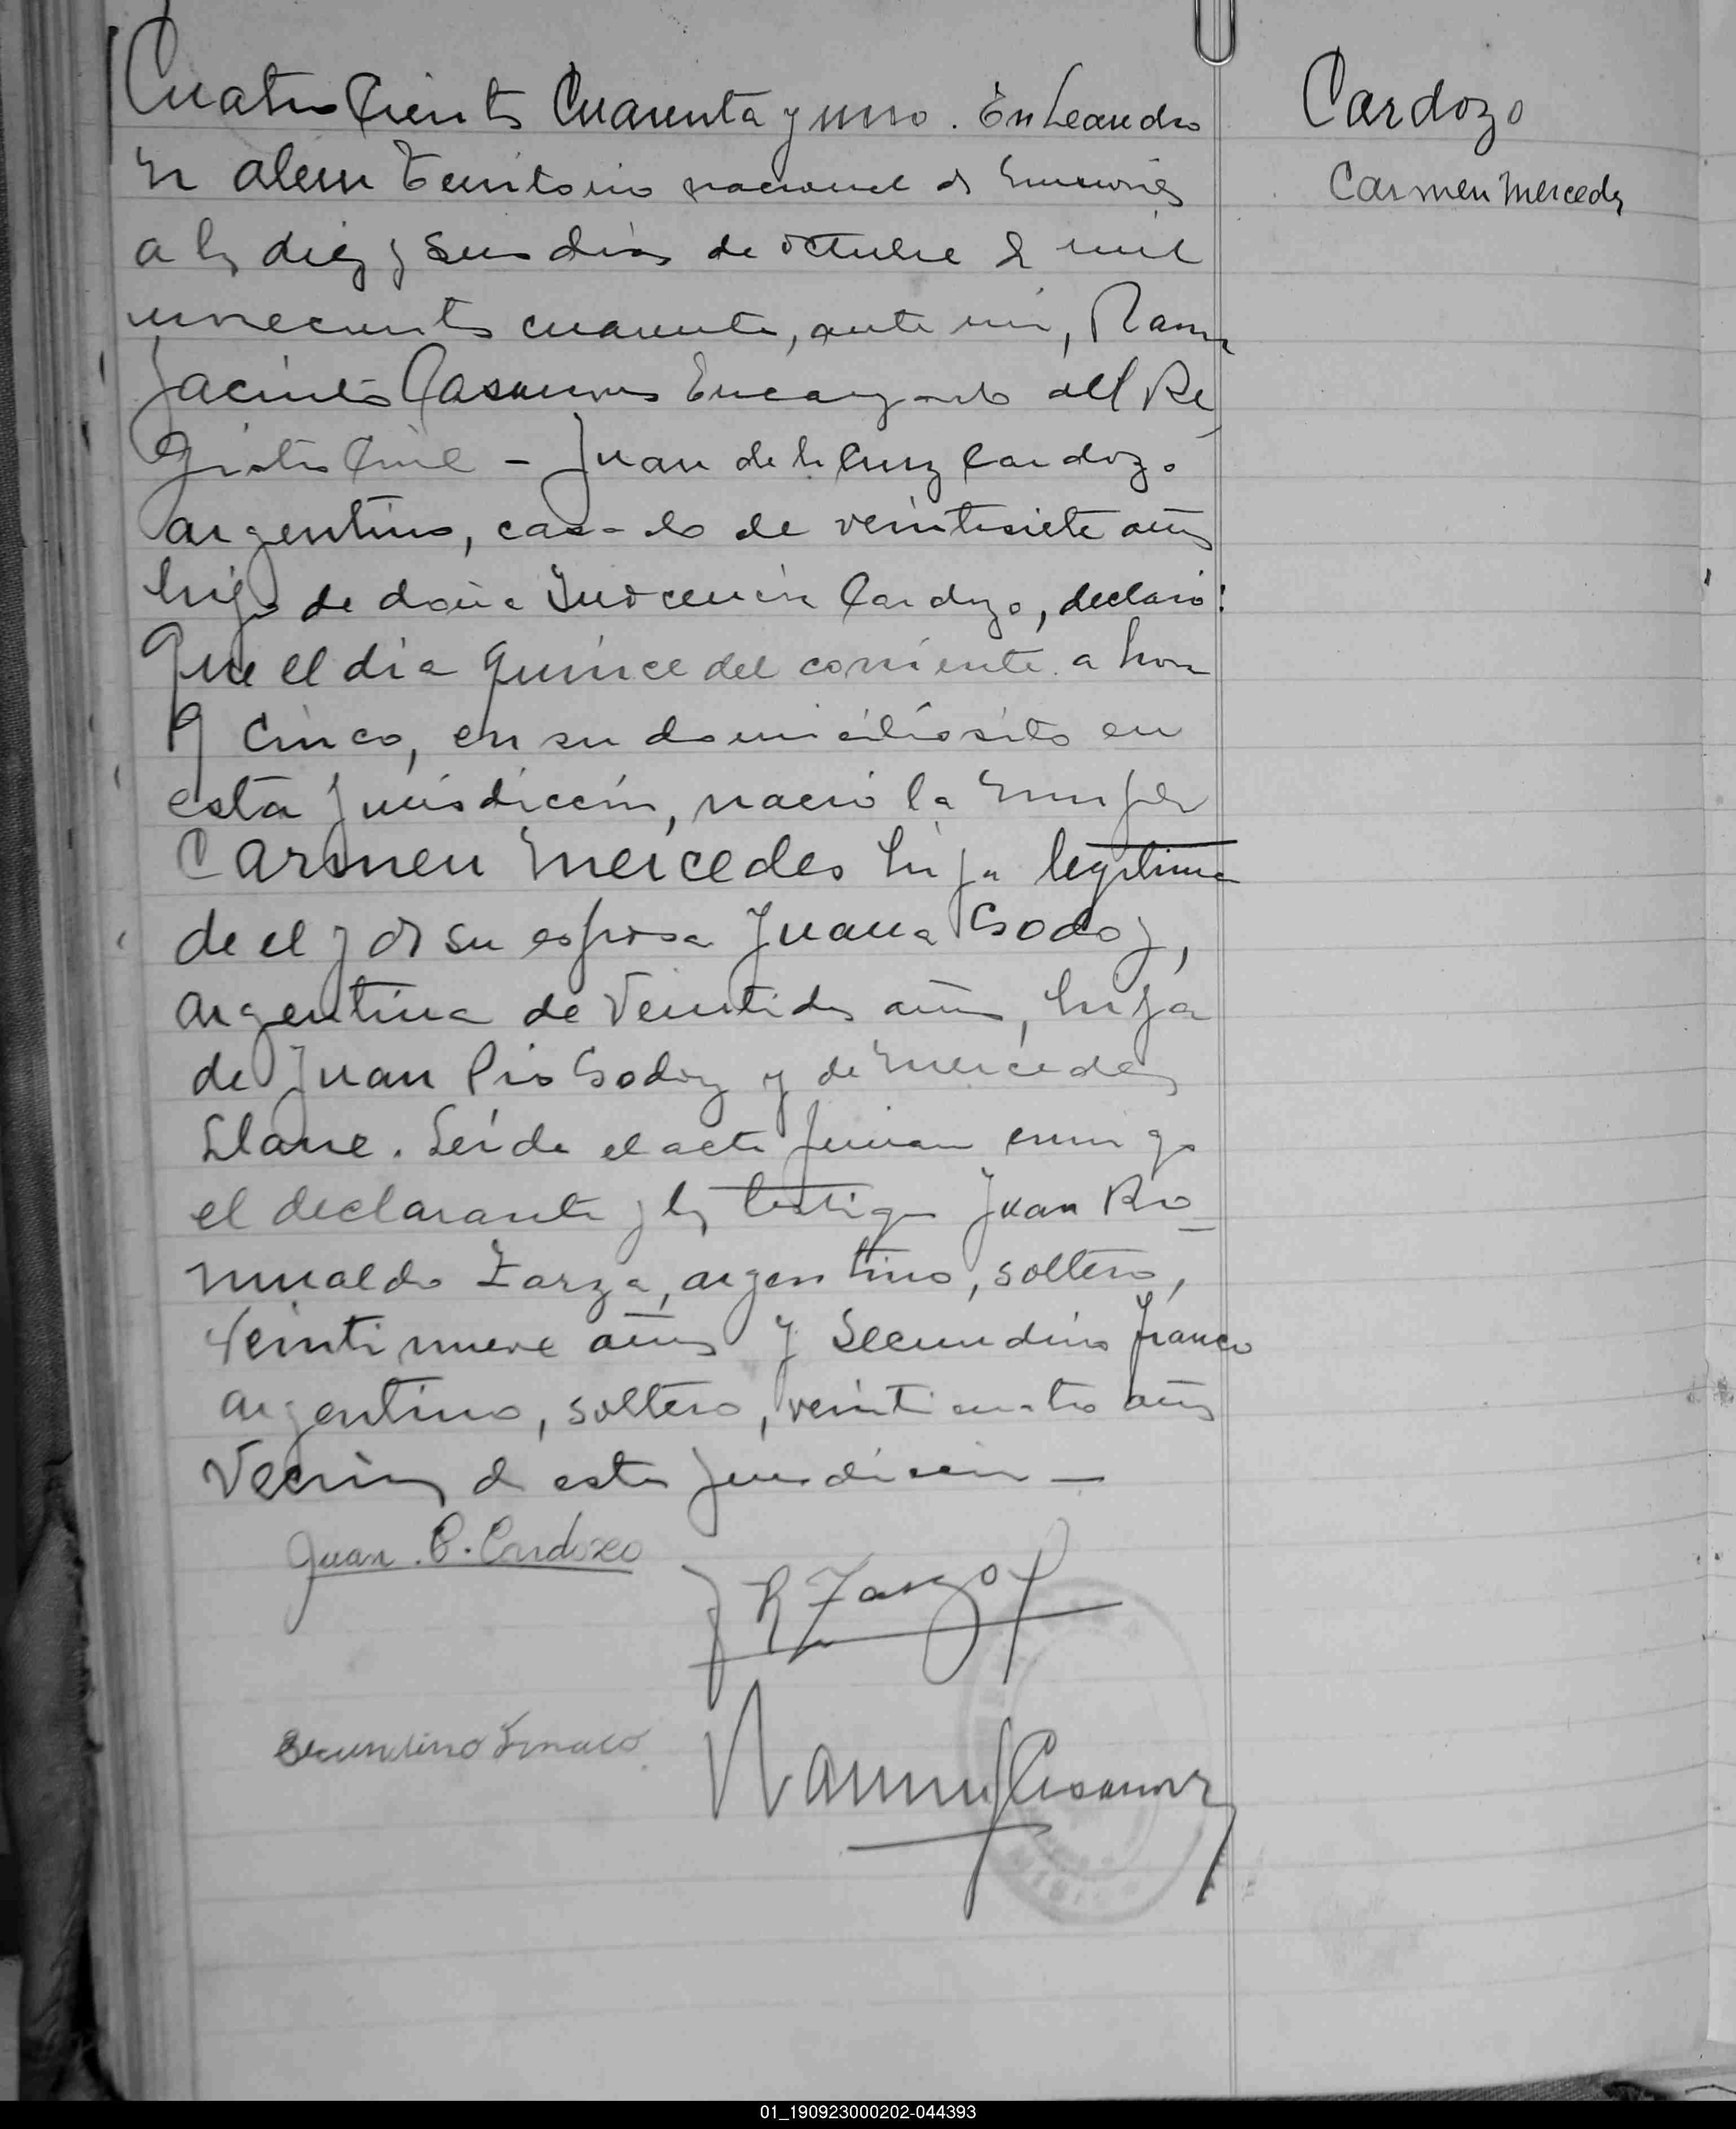 Cuatro Cientos Cuarenta y uno. En Leandro
N alem Territorio nacional de Misiones
a los diez y seis dias de octubre de mil
novecientos cuarenta, ante mi, Ramon
Jacinto Casanova Encargado del Re
gistro Civil - Juan de la Cruz Cardozo
argentino, casado de veintisiete años
hijo de doña Inocencia Cardozo, declaró:
Que el dia quince del corriente a hora
cinco, en su domicilio sito en
esta jurisdiccion, nació la mujer
Carmen Mercedes hija legitima
de el y de su esposa Juana Godoy,
argentina de veintidos años, hija
de Juan Pio Godoy y de Mercedes
Llane. Leida el acta firman conmigo
el declarante y los testigos Juan Ro_
mualdo Zarza, argentino, soltero,
veintinueve años y Secundino Franco
argentino, soltero, veinticuatro años
Vecinos de esta jurisdiccion —
Juan. C. Cardozo
J R Zarza
Secundino Franco
Ramon J Casanova
Cardozo
Carmen Mercedes
01_190923000202-044393